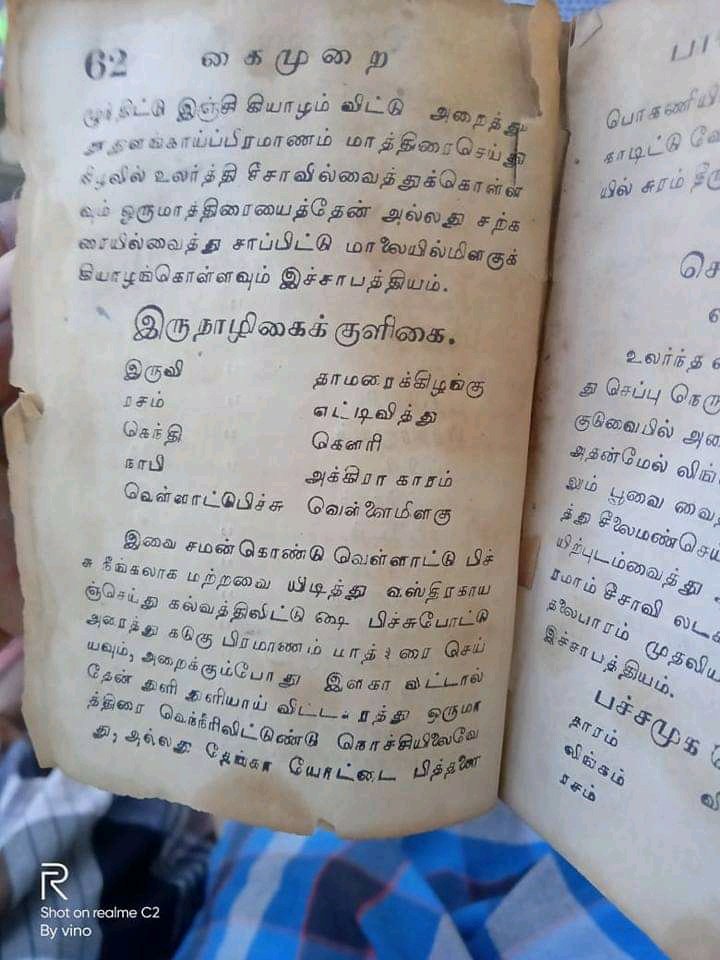 62 கைமுறை
இஞ்சி கியாழம் விட்டு அறைத்து
மாத்திரைசெய்து
உலர்த்தி சீசாவில்வைத்துக்கொள்ள
வும் ஒருமாத்திரையைத்தேன் அல்லது சற்க
ரையில்வைத்து சாப்பிட்டு மாலையில்மிளகுக்
கியாழங்கொள்ளவும் இச்சாபத்தியம்.
இருநாழிகைக் குளிகை.
இருவி தாமரைக்கிழங்கு
ரசம் எட்டிவித்து
கெந்தி கௌரி
நாபி அக்கிராகாரம்
வெள்ளாட்டுபிச்சு வெள்ளைமிளகு
இவை சமன்கொண்டு வெள்ளாட்டு பிச்
சு நீங்கலாக மற்றவை யிடித்து வஸ்திரகாய
ஞ்செய்து கல்வத்திலிட்டு ஷை பிச்சுபோட்டு
அரைத்து கடுகு பிரமாணம் செய்
யவும், அறைக்கும்போது இளகா விட்டால்
தேன் துளி துளியாய் ஒருமா
த்திரை கொச்சியிலைவே
து, அல்லது யோட்டை பித்தளை
பொகணியி
காடிட்டு வே
யில் சுரம் தீரு
உலர்ந்த
து செப்பு நெரு
குடுவையில்
அதன்மேல் லிங்
லும் பூவை வைத்
த்து சீலைமண்செய்
யிற்புடம்வைத்து
ரமாம் சீசாவி லடை
தலைபாரம் முதலிய
இச்சாபத்தியம்.
பச்சமுக
தாரம்
லிங்கம்
ரசம்
R
Shot on realme C2
By vino